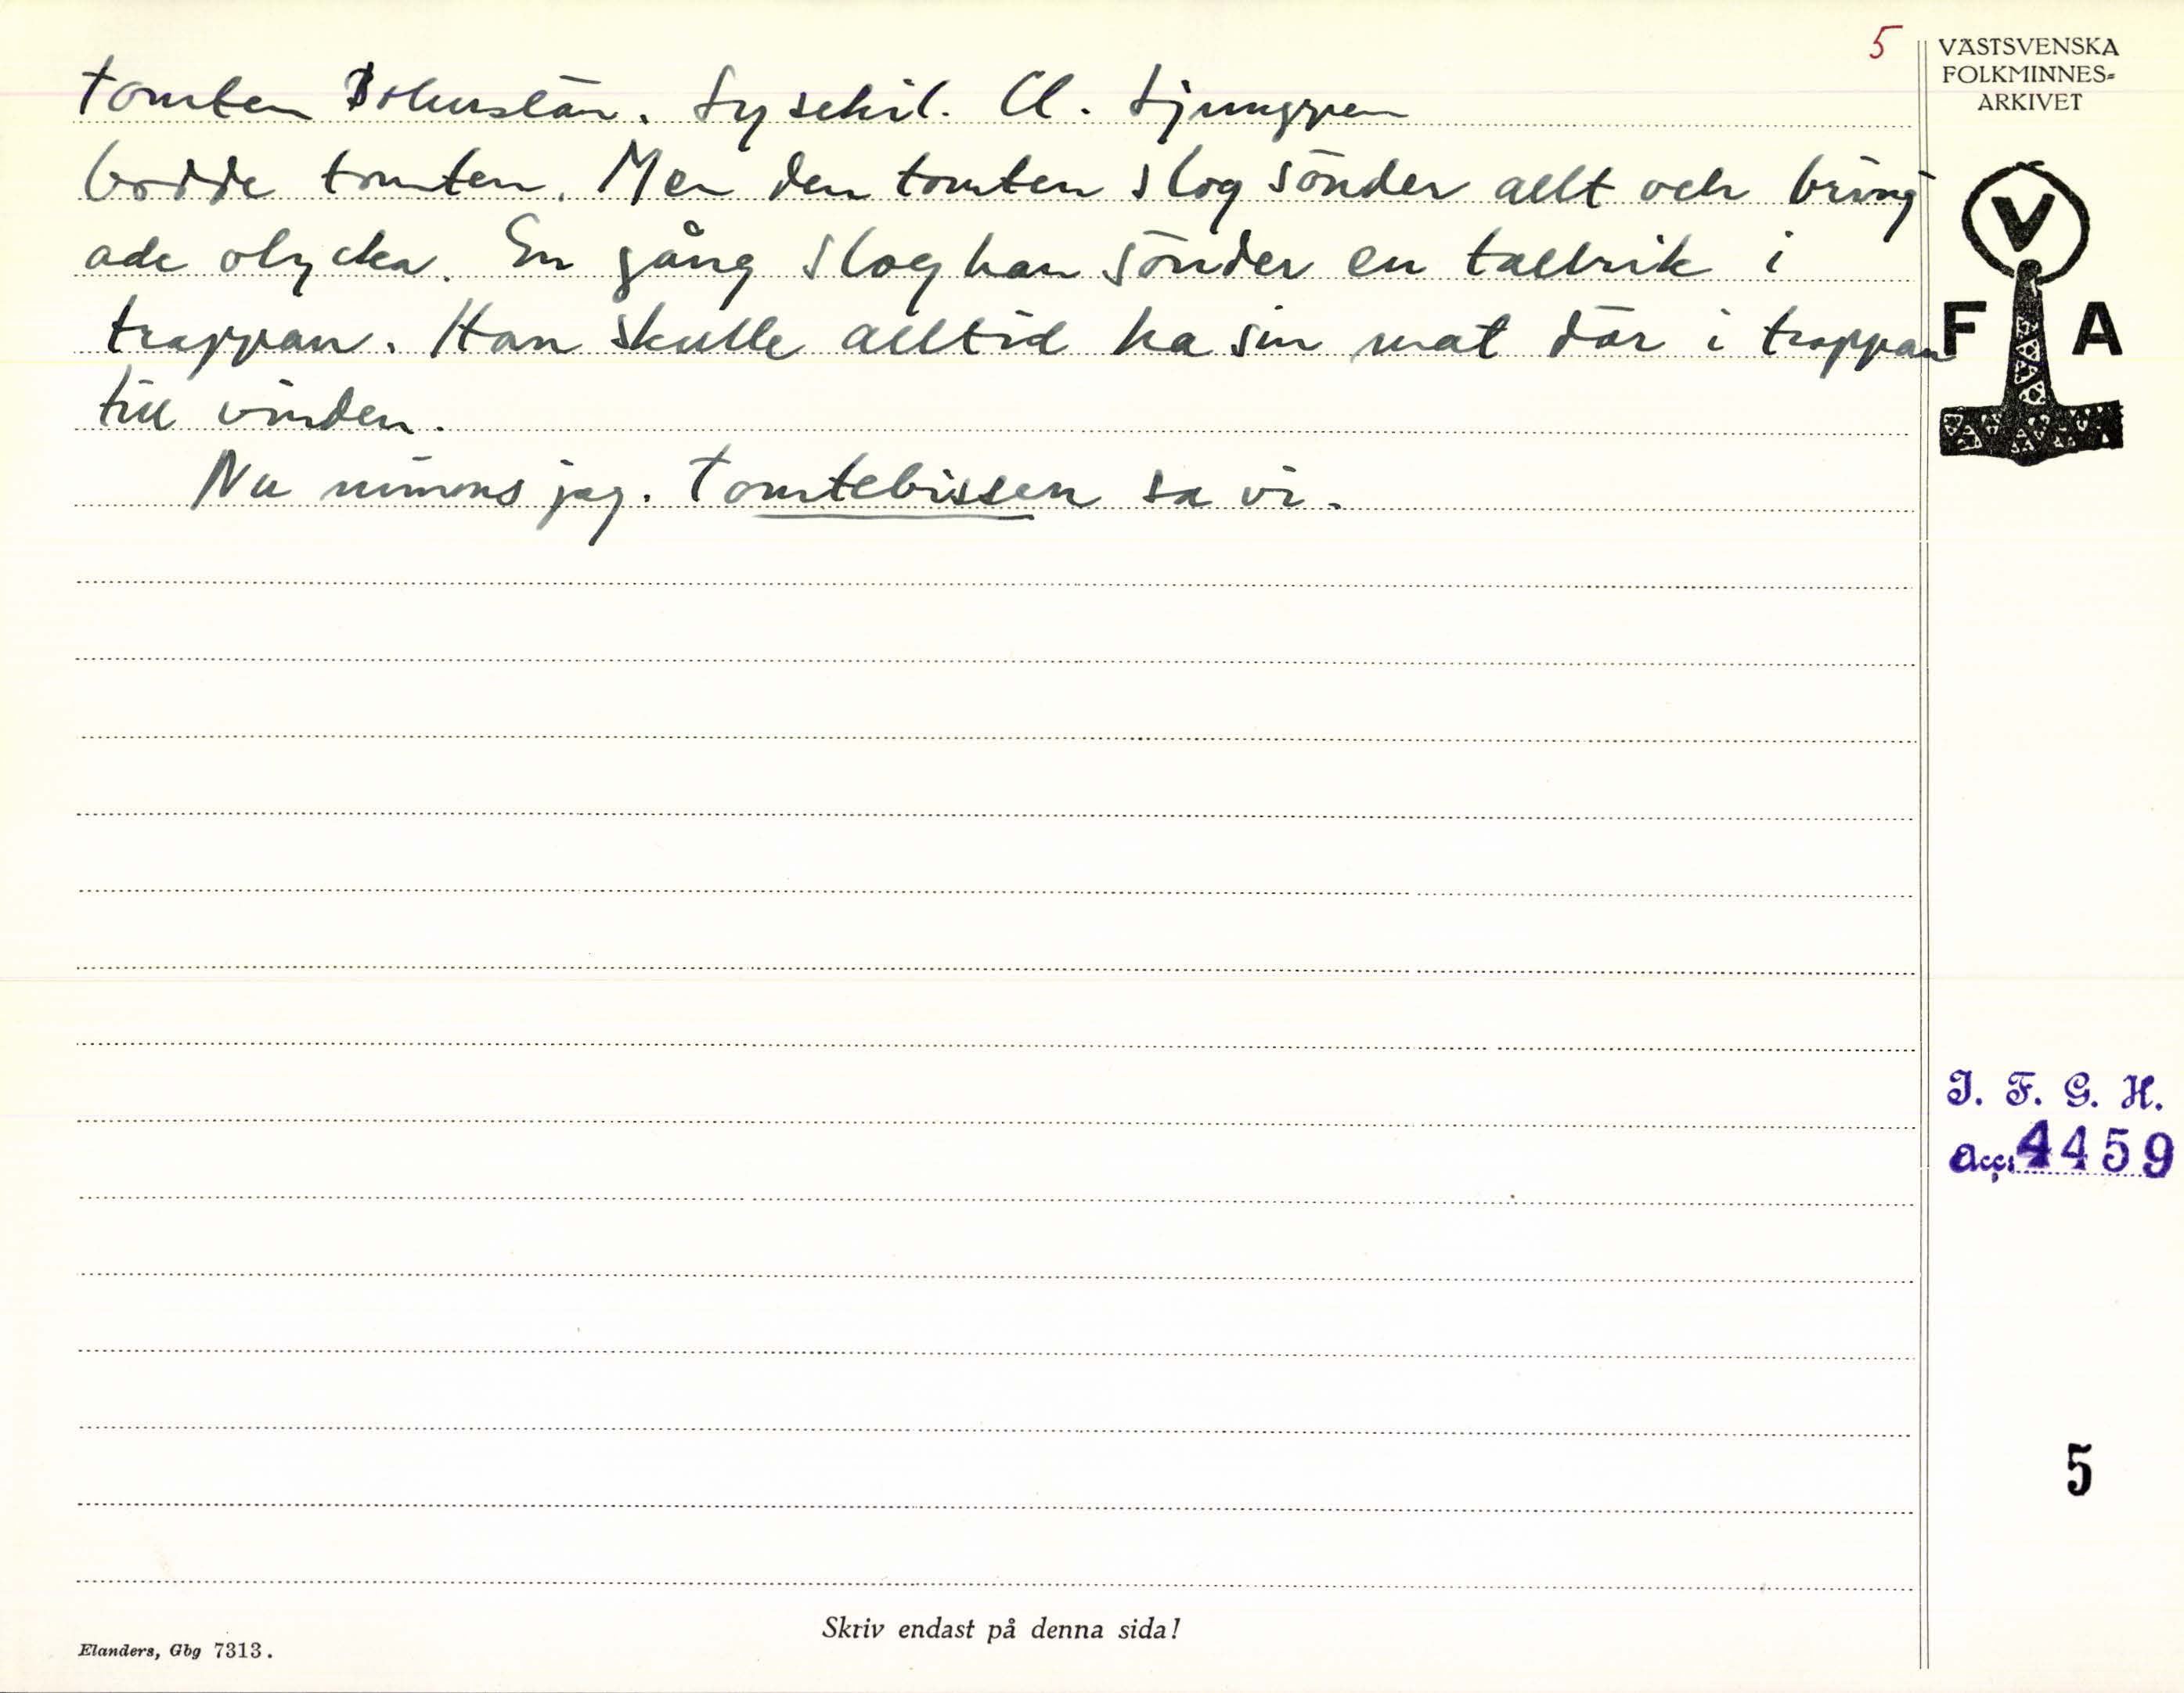 5
VÄSTSVENSKA
FOLKMINNES=
ARKIVET
Tomten Bohuslän. Lysekil. Cl. Ljunggren
bodde tomten. Men den tomten slog sönder allt och bring
ade olycka. En gång slog han sönder en tallrik i
trappan. Han skulle alltid ha sin mat där i trappan
till vinden.
Nu minns jag. Tomtebissen sa vi.
V
F A
I. F. G. H.
Acc: 4459
5
Skriv endast på denna sida!
Elanders, Gbg 7313.